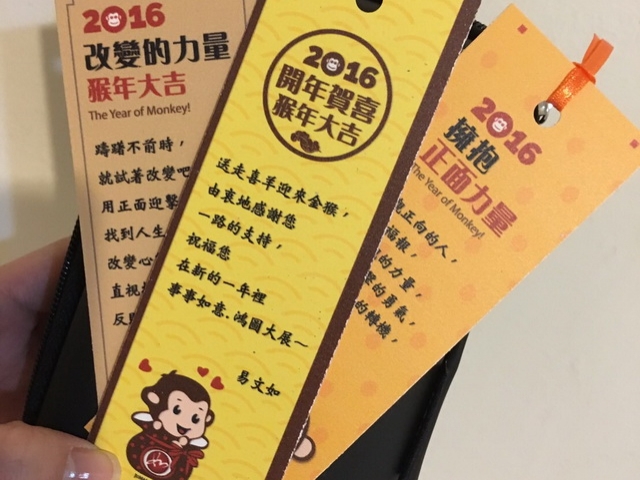 2016
改變的力量
猴年大吉
The Year of Monkey!
躊躇不前時，
就試著改變吧
用正面迎擊
找到人生
改變心
直視
2016
開年賀喜
猴年大吉
送走喜羊迎來金猴，
由衷地感謝您
一路的支持，
祝福您
在新的一年裡
事事如意．鴻圖大展～
易文如
2016
擁抱
正面力量
The Year of Monkey!
正向的人，
的力量，
的勇氣，
的轉機，